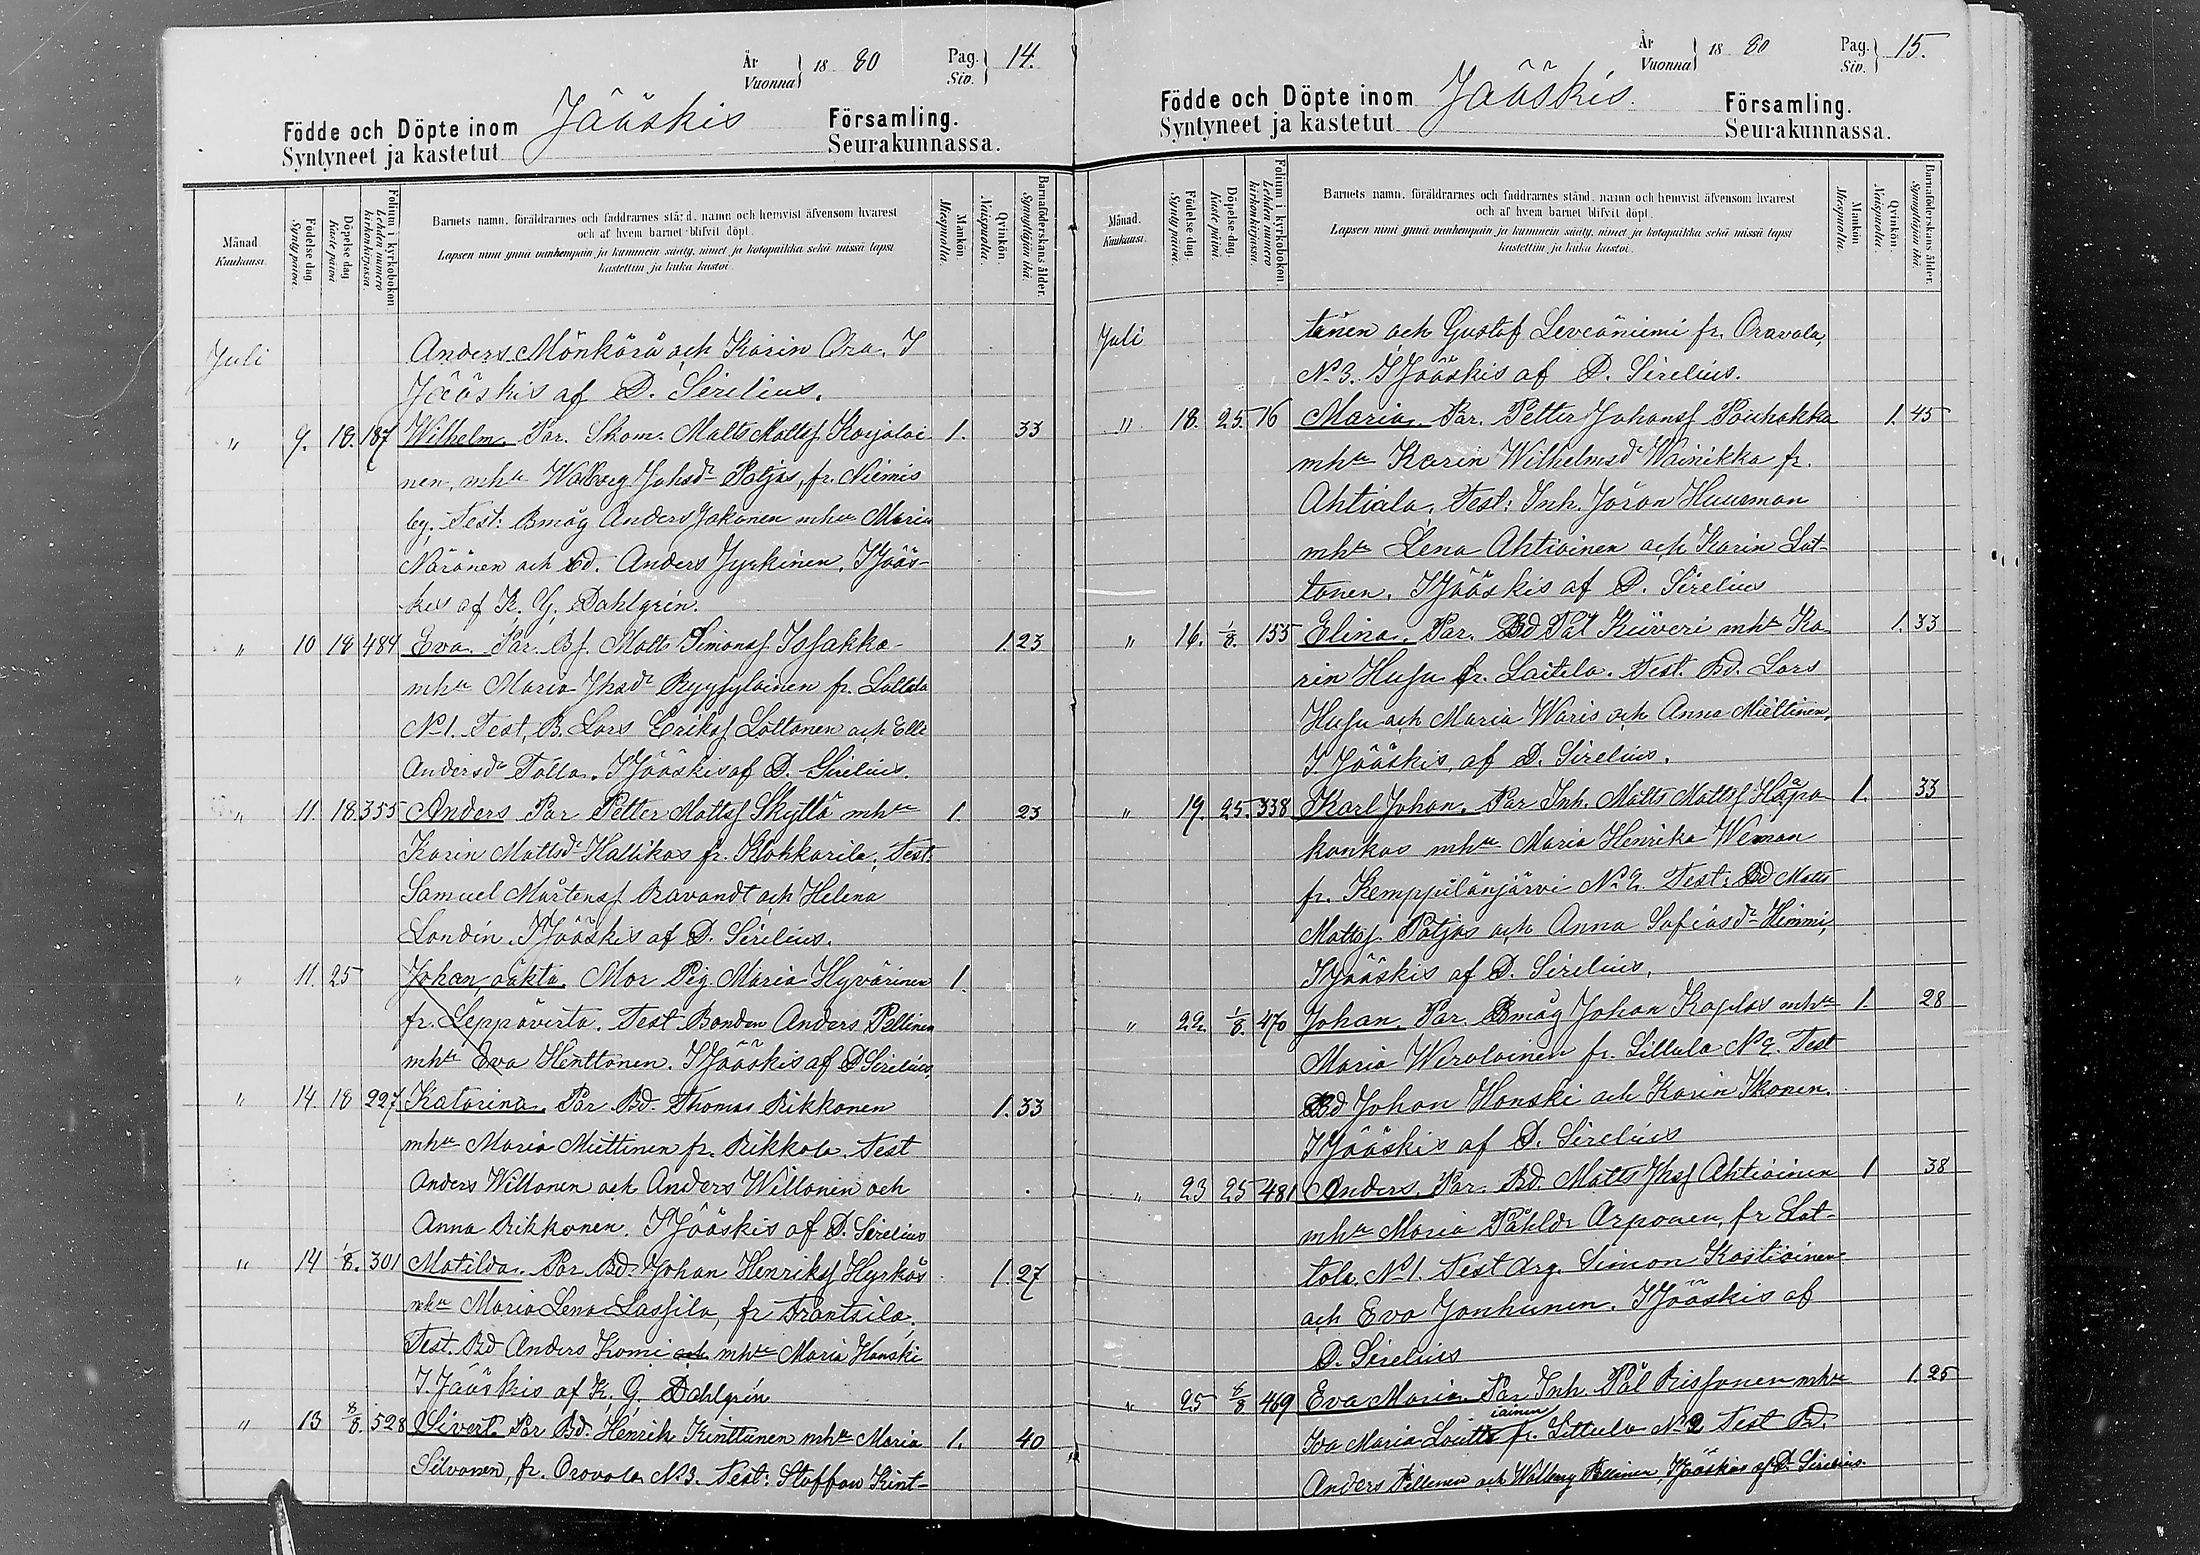 År Vuonna 1880 Pag. Siv. 14.
Födde och Döpte inom Jääskis Församling.
Syntyneet ja kastetut Seurakunnassa.
Månad. Kuukausi.
Födelse dag. Syntypäivä.
Döpelse dag. Kaste päivä
Folium i kyrkoboken. Lehden numero kirkonkirjassa.
Barnets namn, föräldrarnes och faddrarnes stånd, namn och hemvist äfvensom hvarest
och af hvem barnet blifvit döpt.
Lapsen nimi ynnä vanhempain ja kummein sääty, nimet ja kotopaikka sekä missä lapsi
kastettiin ja kuka kastoi.
Mankön. Miespuolia.
Qvinkön. Naispuolia.
Barnaföderskans ålder. Synnyttäjän ikä.
Juli Anders Mönkärä och Karin Ora. I
Jääskis af D. Sirelius.
" 9. 18. 187 Wilhelm. Par. Skom. Matts Mattsf Karjalai- 1. 33
nen, mhu Walborg Johsdr Patjas, fr. Niemis
by, Test: Bmåg Anders Jakonen mhu Maria
Näränen och Bd. Anders Jyrkinen. I Jääs-
kis af K. G. Dahlgrén.
" 10 18 484 Eva. Par. Bf. Matts Simonsf Issakka- 1. 23
mhu Maria Jhsdr Ryysyläinen fr. Lattola
No 1. Test. B. Lars Eriksf Lattonen och Elli
Andersdr Talla. I Jääskis af D. Sirelius.
" 11. 18. 355 Anders Par Petter Mattsf Skyttä mhu 1. 23
Karin Mattsdr Hallikas fr. Kohkarila; Test.
Samuel Mårtensf Ravandt och Helena
Londén. I Jääskis af D. Sirelius.
" 11. 25 Johan, oäkta. Mor Pig. Maria Hyvärinen 1.
fr. Leppävirta. Test Bonden Anders Pellinen
mhu Eva Henttonen. I Jääskis af D Sirelius.
" 14. 18 227 Katarina. Par Bd. Thomas Rikkonen 1. 33
mhu Maria Miettinen fr. Rikkola. Test
Anders Willanen och Anders Willonen och
Anna Rikkonen. I Jääskis af D. Sirelius
" 14 1/8. 301 Matilda. Par Bd. Johan Henriksf Hyrkäs 1 27
mhu Maria Lena Lassila, fr Frantsila.
Test. Bd Anders Komi och mhu Maria Hanski
I Jääskis af K. G. Dahlgrén
" 13 8/8. 528 Sivert. Par Bd. Henrik Kinttunen mhu Maria 1. 40
Silvonen, fr. Oravala No 3. Test: Staffan Kint-
År Vuonna 1880 Pag. Siv. 15.
Födde och Döpte inom Jääskis. Församling.
Syntyneet ja kastetut Seurakunnassa.
Månad. Kuukausi.
Födelse-dag. Syntypäivä.
Döpelse-dag. Kaste päivä.
Folium i kyrkoboken. Lehden numero kirkonkirjassa.
Barnets namn, föräldrarnes och faddrarnes stånd, namn och hemvist äfvensom hvarest
och af hvem barnet blifvit döpt.
Lapsen nimi ynnä vanhempain ja kummein sääty, nimet ja kotopaikka sekä missä lapsi
kastettiin ja kuka kastoi.
Mankön. Miespuolia.
Qvinkön. Naispuolia.
Barnaföderskans ålder. Synnyttäjän ikä.
Juli tänen och Gustaf Leveäniemi fr. Oravala,
No 3. I Jääskis af D. Sirelius.
" 18. 25. 16 Maria. Par. Petter Johansf Pouhakka 1. 45
mhu Karin Wilhelmsdr Wainikka fr.
Ahtiala. Test: Inh. Jöran Huusman
mhu Lena Ahtiainen och Karin Lat-
tonen. I Jääskis af D. Sirelius
" 16. 1/8. 155 Elina. Par. Bd Pål Kiiveri mhu Ka- 1. 33
rin Husu fr. Laitila. Test. Bd. Lars
Husu och Maria Waris och Anna Miettinen,
I Jääskis, af D. Sirelius.
" 19. 25. 338 Karl Johan. Par Inh. Matts Mattsf Haapa- 1. 33
kankas mhu Maria Henrika Weman
fr. Kemppilänjärvi No 2. Test: Bd Matts
Mattsf Patjas och Anna Sofiasdr Himmi,
I Jääskis af D. Sirelius.
" 22. 1/8. 470 Johan. Par. Bmåg Johan Kaplas mhu 1. 28
Maria Wirolainen fr. Littula No 2. Test
Bd Johan Hanski och Karin Ikonen.
I Jääskis af D. Sirelius
" 23 25 481 Anders. Par. Bd. Matts Jhsf Ahtiainen 1 38
mhu Maria Påhldr Arponen, fr Lat-
tola No 1. Test drg. Simon Kostiainen
och Eva Janhunen. I Jääskis af
D. Sirelius
" 25 8/8 469 Eva Maria. Par Inh. Pål Rissanen mhu 1. 25
iainen
Iva Maria Loutt fr. Littula No 2 Test Bd.
Anders Pellinen och Walborg Pellinen I Jääskis af D. Sirelius.